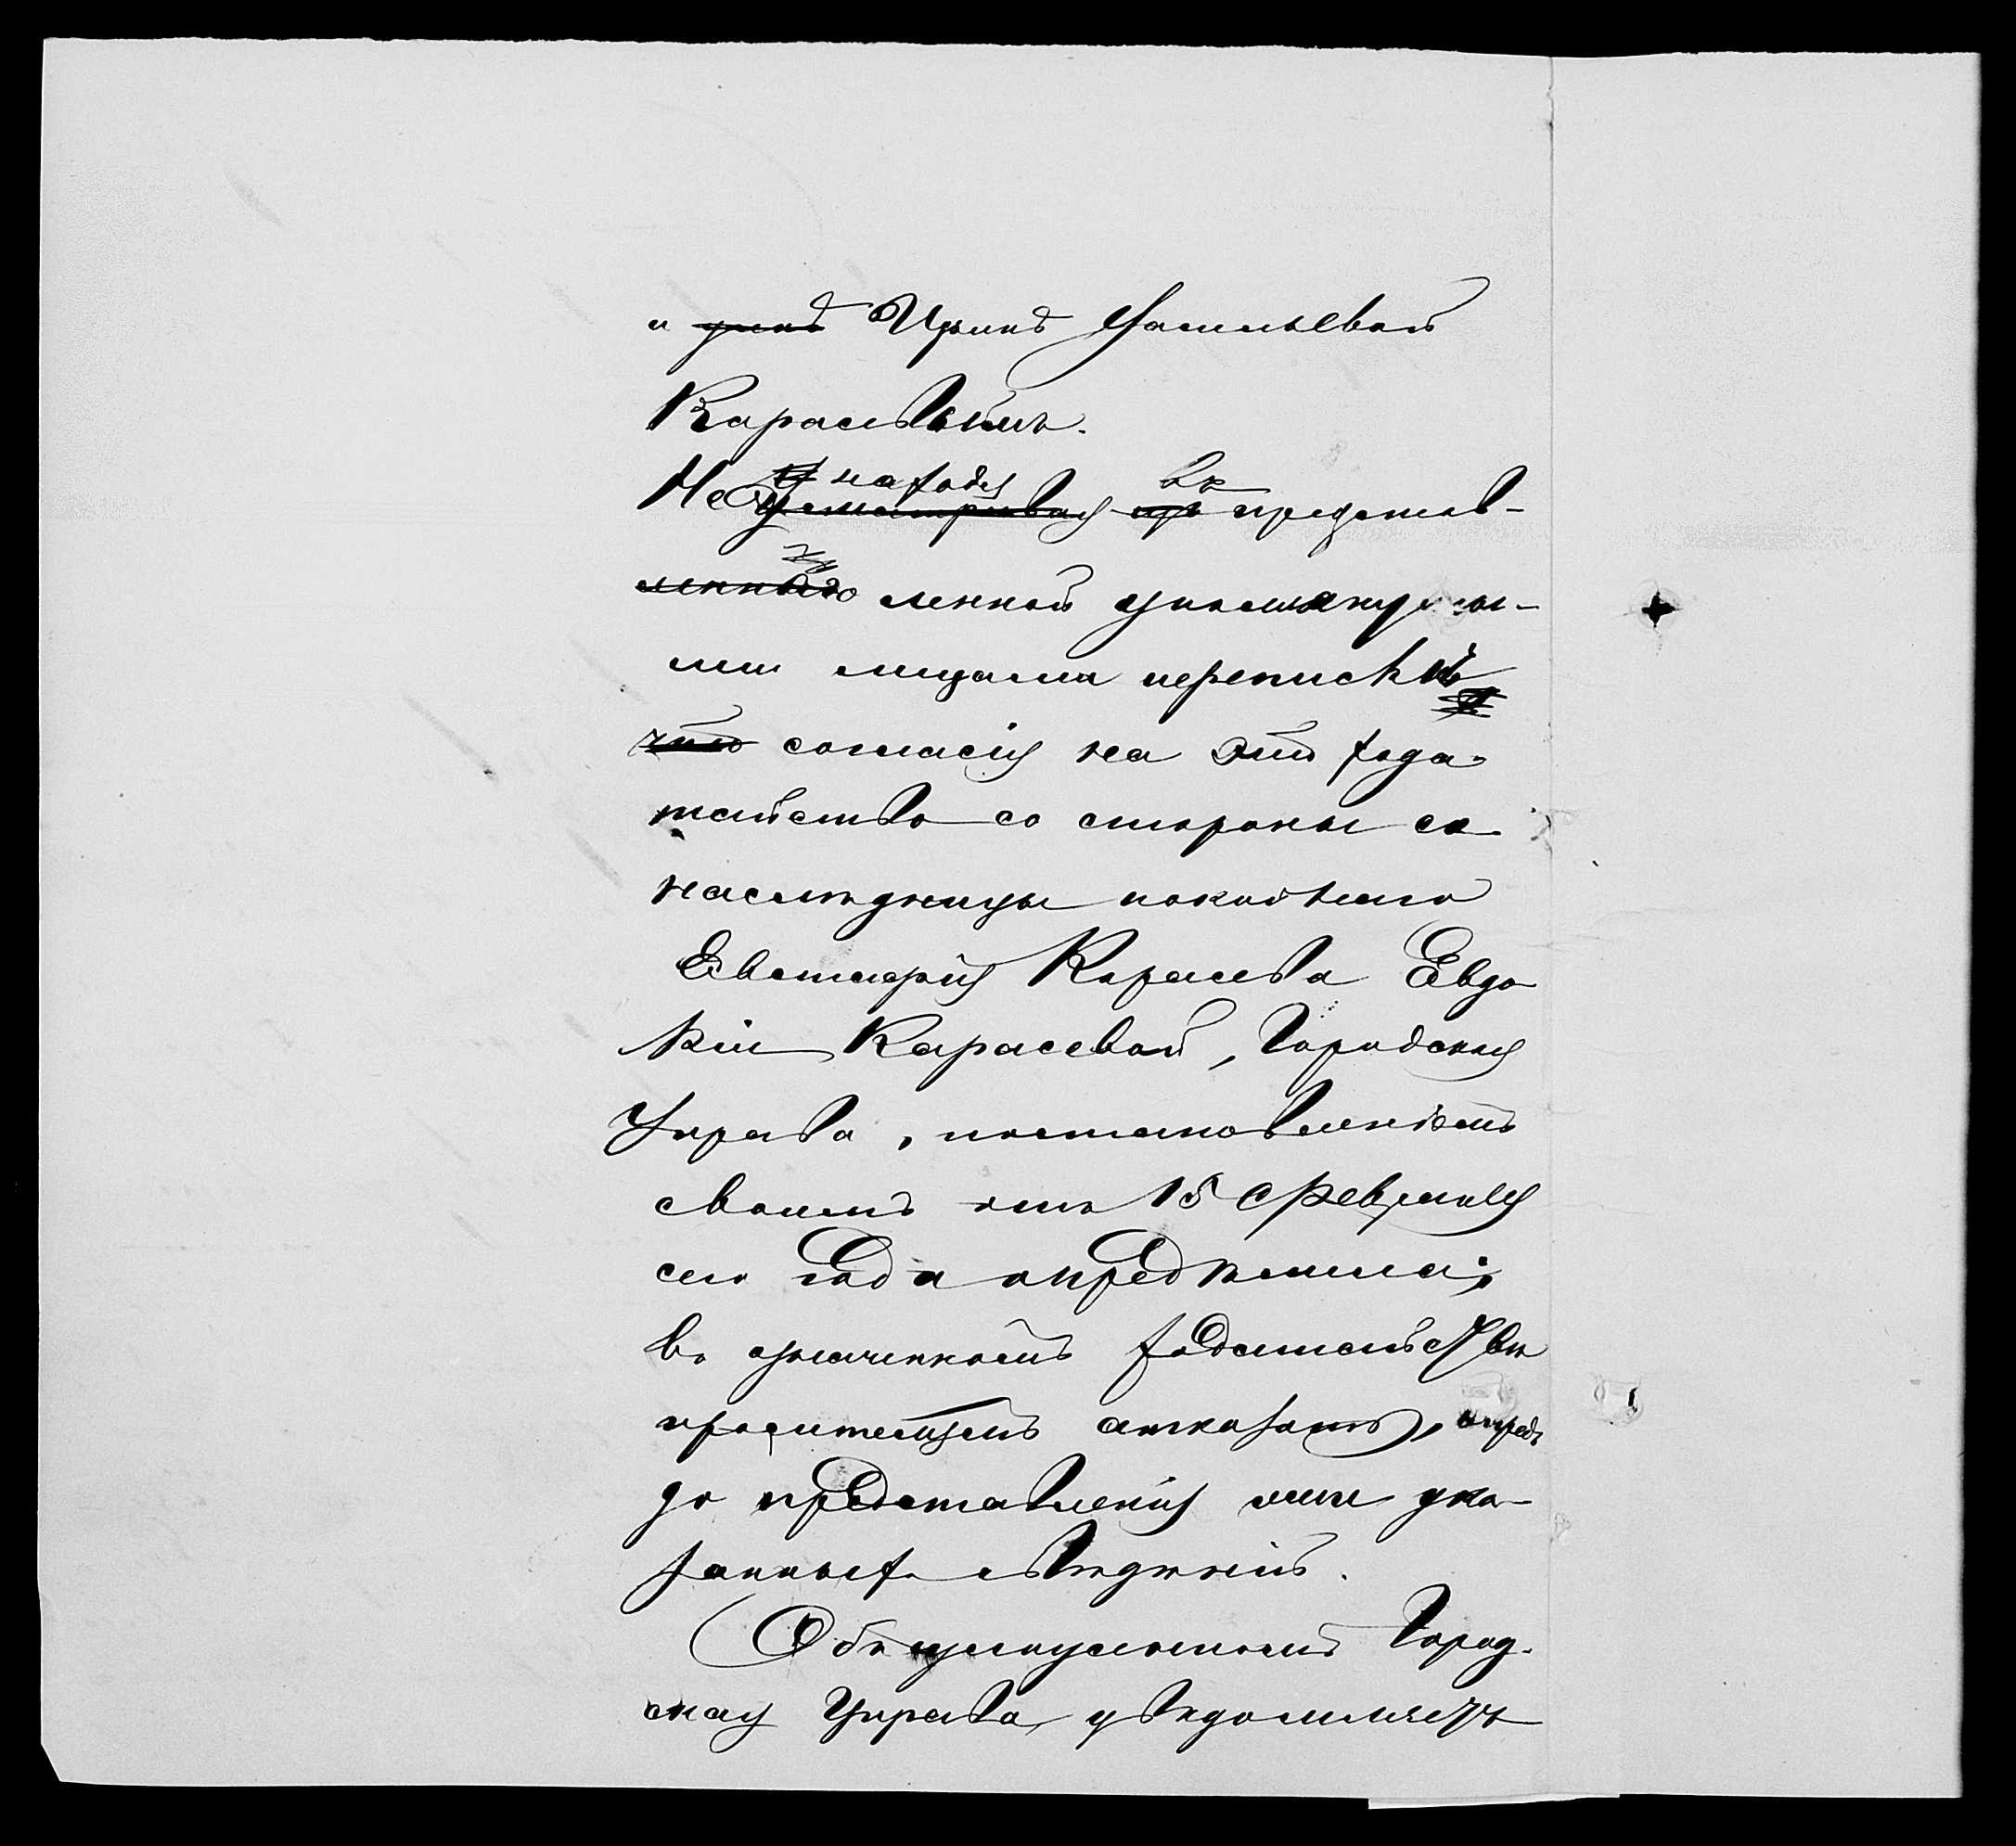 и Иринѣ Васильевой
Карасевымъ.
находя въ
Не усматривая изъ представ-
леннаго ленной упомянуты-
ми лицами переписки
что согласія на это хода-
тайство со стороны со-
наслѣдницы покойнаго
Евстафія Карасева Евдо-
кіи Карасевой, Городская
Управа, постановленіемъ
своимъ отъ 15 Февраля
сего года опредѣлила:
въ означенномъ ходатайствѣ
просителямъ отказать, впредь
до представленія ими ука-
занныхъ свѣдѣній.
Объ изложенномъ Город-
ская Управа увѣдомляетъ